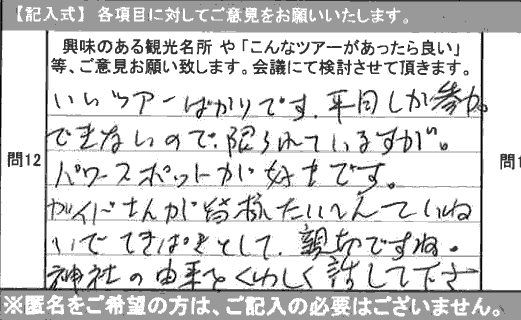 【記入式】 各項目に対してご意見をお願いいたします。
興味のある観光名所 や 「こんなツアーがあったら良い」
等、ご意見お願い致します。会議にて検討させて頂きます。
いいツアーばかりです。平日しか参加
できないので、限られていますが。
問12
パワースポットが好きです。
ガイドさんが皆様たいへんていね
いで てきぱきとして、親切ですね。
神社の由来をくわしく話して下さ
※匿名をご希望の方は、ご記入の必要はございません。
問1